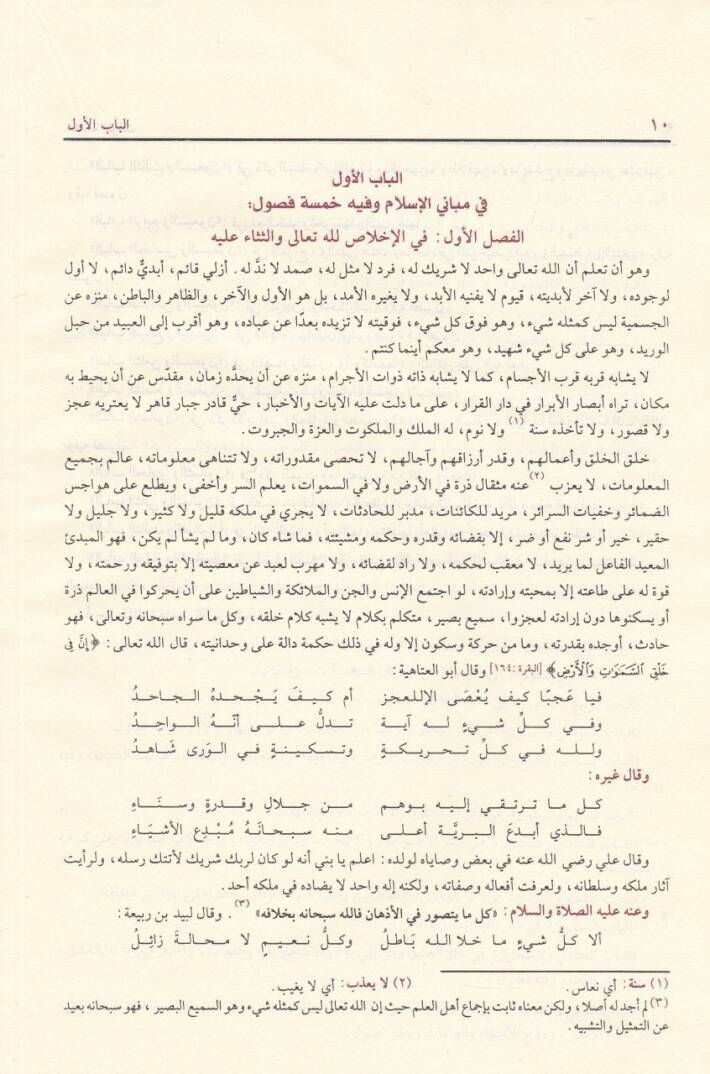 ١٠ الباب الأول
الباب الأول
في مباني الإسلام وفيه خمسة فصول:
الفصل الأول: في الإخلاص لله تعالى والثناء عليه
وهو أن تعلم أن الله تعالى واحد لا شريك له، فرد لا مثل له، صمد لا ندَّ له. أزلي قائم، أبديٌّ دائم، لا أول
لوجوده، ولا آخر لأبديته، قيوم لا يفنيه الأبد، ولا يغيره الأمد، بل هو الأول والآخر، والظاهر والباطن، منزه عن
الجسمية ليس كمثله شيء، وهو فوق كل شيء، فوقيته لا تزيده بعدًا عن عباده، وهو أقرب إلى العبيد من حبل
الوريد، وهو على كل شيء شهيد، وهو معكم أينما كنتم.
لا يشابه قربه قرب الأجسام، كما لا يشابه ذاته ذوات الأجرام، منزه عن أن يحدَّه زمان، مقدّس عن أن يحيط به
مكان، تراه أبصار الأبرار في دار القرار، على ما دلت عليه الآيات والأخبار، حيٌّ قادر جبار قاهر لا يعتريه عجز
ولا قصور، ولا تأخذه سنة (١) ولا نوم، له الملك والملكوت والعزة والجبروت.
خلق الخلق وأعمالهم، وقدر أرزاقهم وآجالهم، لا تحصى مقدوراته، ولا تتناهى معلوماته، عالم بجميع
المعلومات، لا يعزب (٢) عنه مثقال ذرة في الأرض ولا في السموات، يعلم السر وأخفى، ويطلع على هواجس
الضمائر وخفيات السرائر، مريد للكائنات، مدبر للحادثات، لا يجري في ملكه قليل ولا كثير، ولا جليل ولا
حقير، خير أو شر نفع أو ضر، إلا بقضائه وقدره وحكمه ومشيئته، فما شاء كان، وما لم يشأ لم يكن، فهو المبدئ
المعيد الفاعل لما يريد، لا معقب لحكمه، ولا راد لقضائه، ولا مهرب لعبد عن معصيته إلا بتوفيقه ورحمته، ولا
قوة له على طاعته إلا بمحبته وإرادته، لو اجتمع الإنس والجن والملائكة والشياطين على أن يحركوا في العالم ذرة
أو يسكنوها دون إرادته لعجزوا، سميع بصير، متكلم بكلام لا يشبه كلام خلقه، وكل ما سواه سبحانه وتعالى، فهو
حادث، أوجده بقدرته، وما من حركة وسكون إلا وله في ذلك حكمة دالة على وحدانيته، قال الله تعالى: ﴿إِنَّ فِي
خَلْقِ السَّمَاوَاتِ وَالْأَرْضِ﴾ [البقرة: ١٦٤] وقال أبو العتاهية:
فيا عَجبًا كيف يُعْصَى الإللعجز أم كيفَ يَجْحدهُ الجاحدُ
وفي كلِّ شيءٍ له آية تدلُّ على أنَّهُ الواحِدُ
ولله في كلِّ تحريكةٍ وتسكينةٍ في الوَرى شَاهدُ
وقال غيره:
كل ما ترتقي إليه بوهم من جلالِ وقدرةٍ وسنَاءِ
فالذي أبدعَ البريَّة أعلى منه سبحانَهُ مُبْدِع الأشيَاءِ
وقال علي رضي الله عنه في بعض وصاياه لولده: اعلم يا بني أنه لو كان لربك شريك لأتتك رسله، ولرأيت
آثار ملكه وسلطانه، ولعرفت أفعاله وصفاته، ولكنه إله واحد لا يضاده في ملكه أحد.
وعنه عليه الصلاة والسلام: «كل ما يتصور في الأذهان فالله سبحانه بخلافه» (٣). وقال لبيد بن ربيعة:
ألا كلُّ شيءٍ ما خلا الله بَاطلُ وكلُّ نعيمٍ لا محالةَ زائِلُ
(١) سنة: أي نعاس. (٢) لا يعذب: أي لا يغيب.
(٣) لم أجد له أصلا، ولكن معناه ثابت بإجماع أهل العلم حيث إن الله تعالى ليس كمثله شيء وهو السميع البصير، فهو سبحانه بعيد
عن التمثيل والتشبيه.